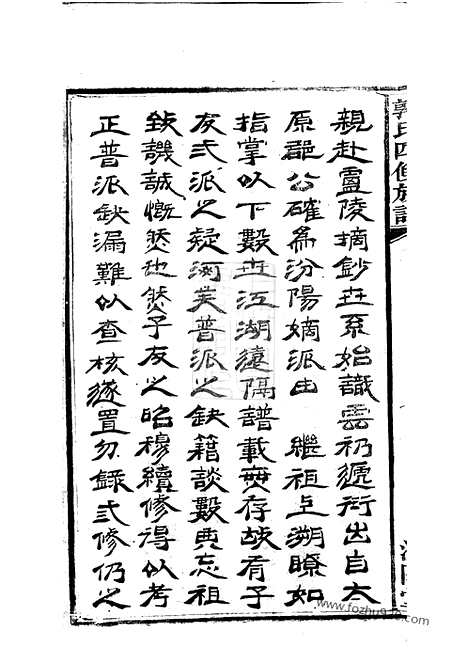 郭氏四修族譜
親赴盧陵摘鈔世系始識雲礽遞衍出自太
原郡公確為汾陽嫡派由 繼祖上溯瞭如
指掌以下數世江湖遠隔譜載無存故有子
友弍派之疑洵矣普派之缺籍談數典忘祖
致譏誠慨然也然子友之昭穆續修得以考
正普派缺漏難以查核遂置勿錄弍修仍之
www.fozhu920.com